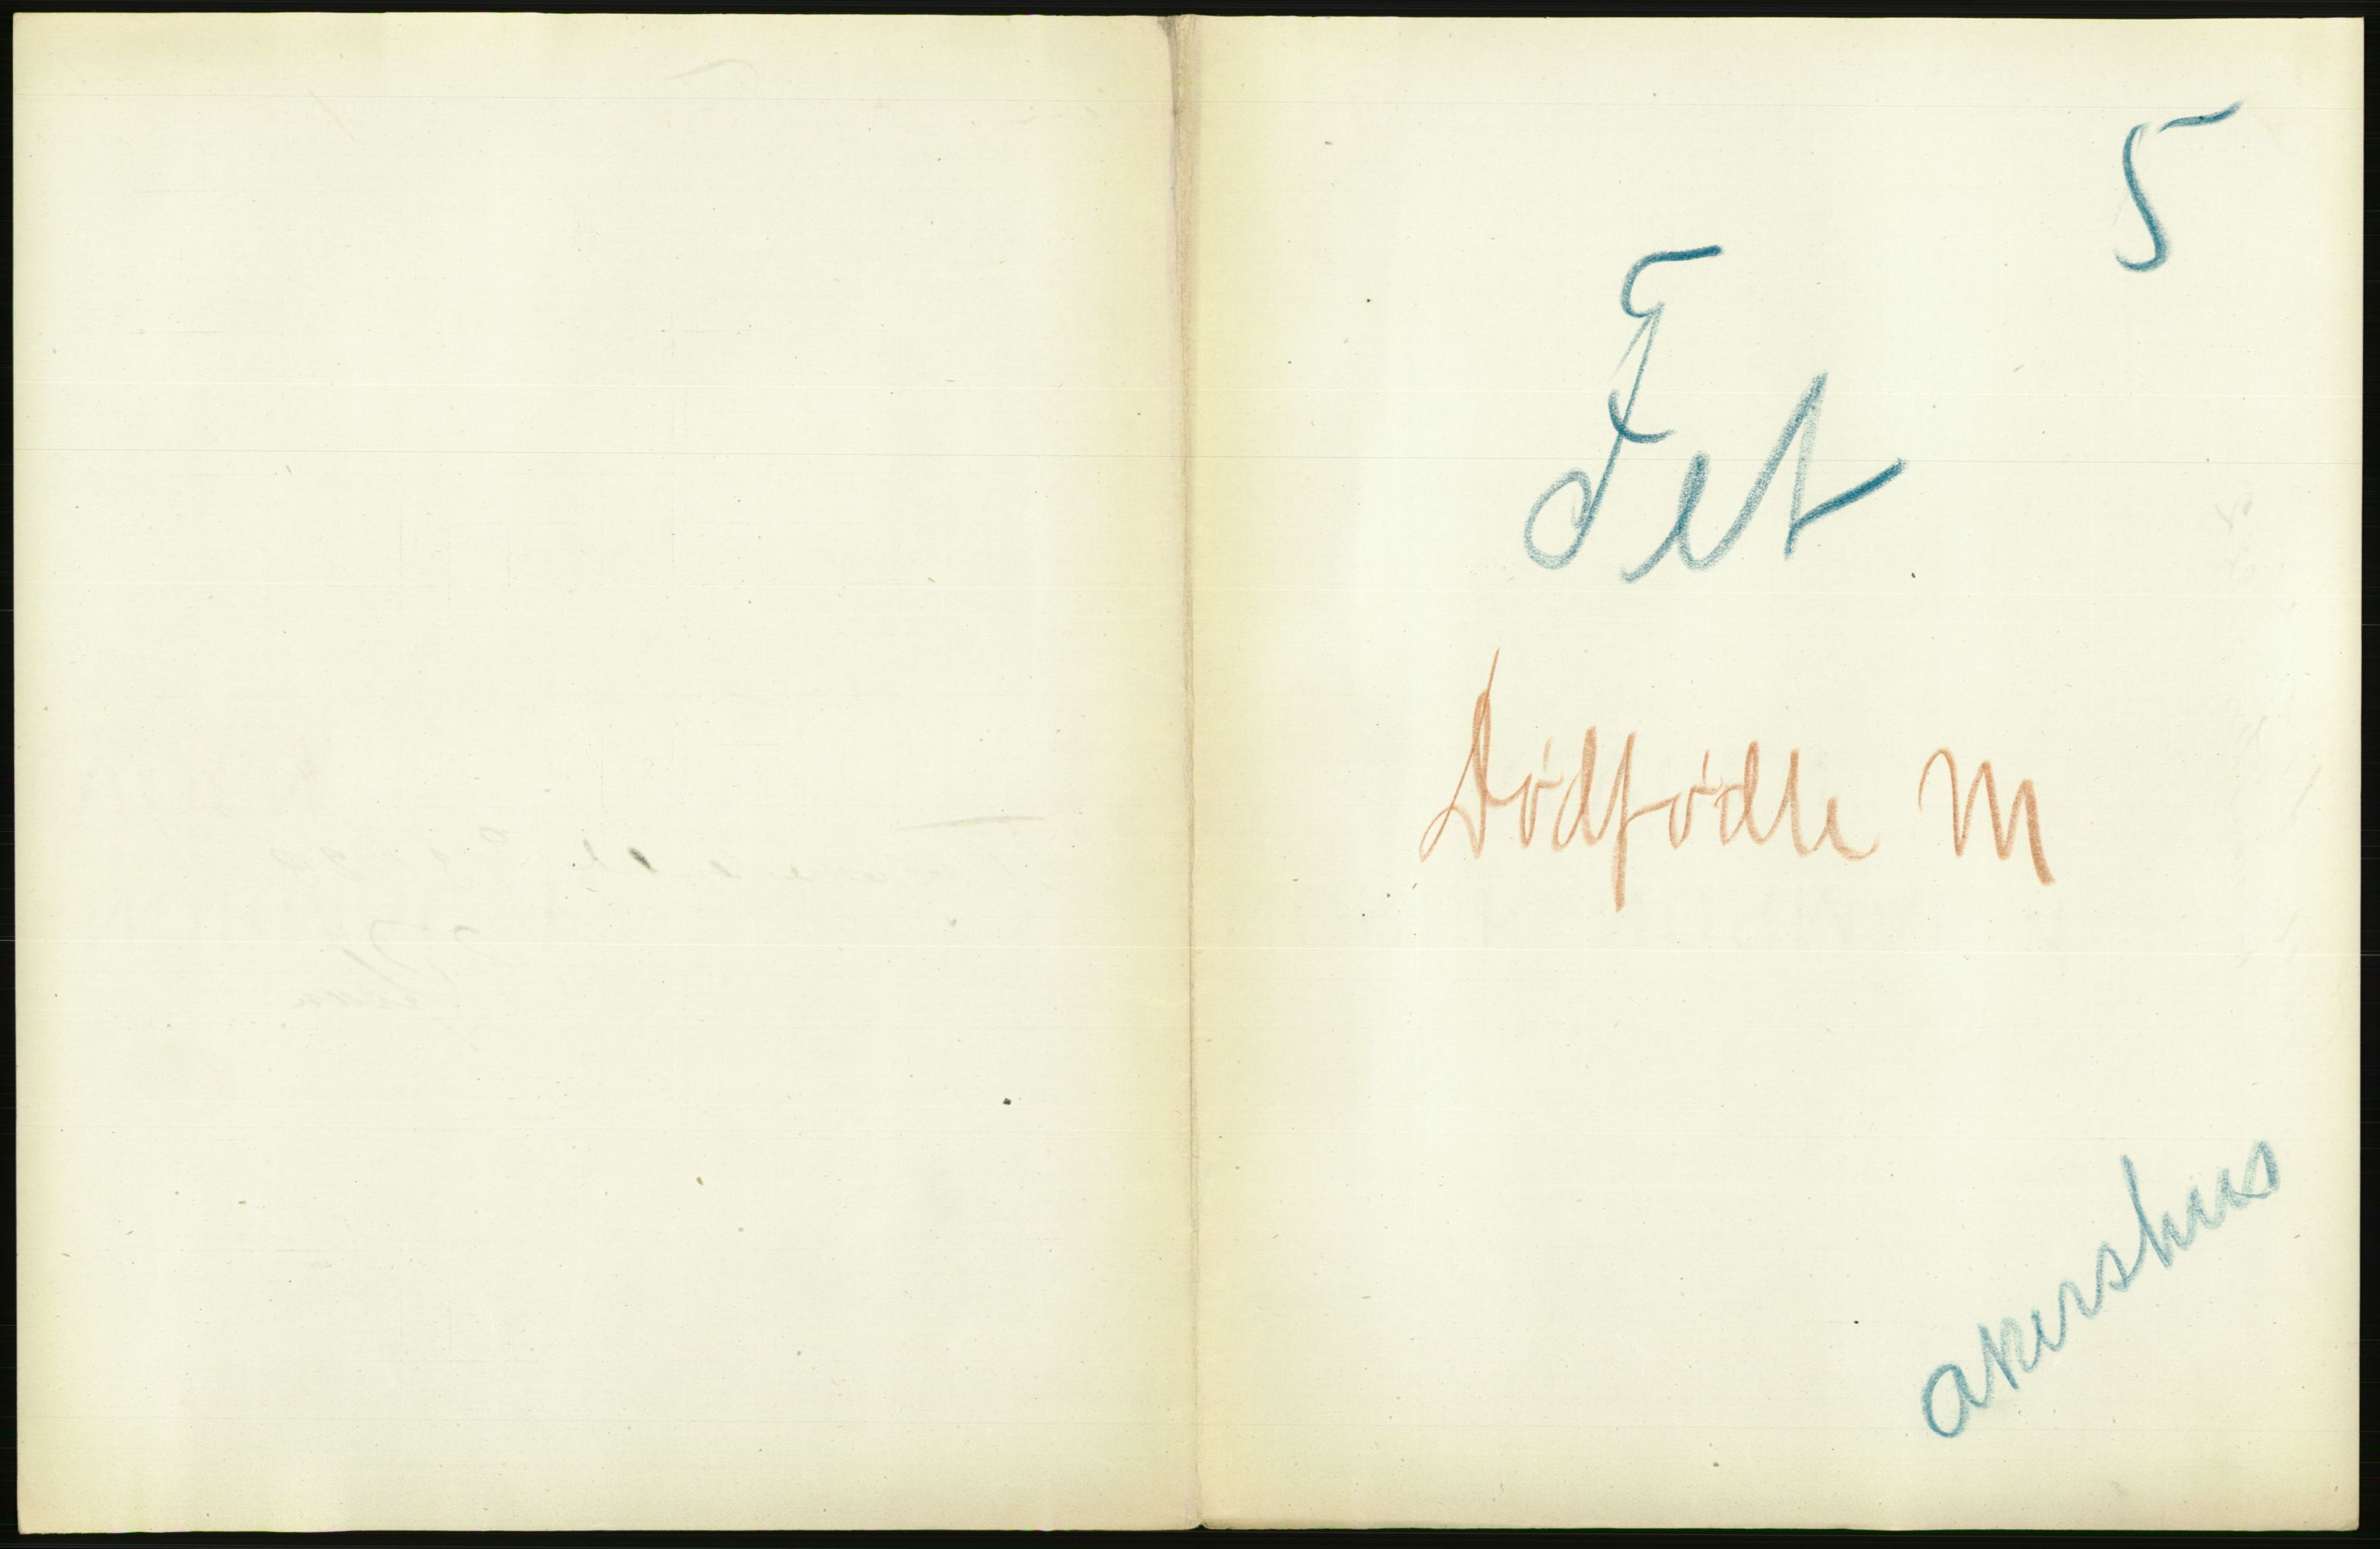 5
Fet
Dødfødte M
Akershus